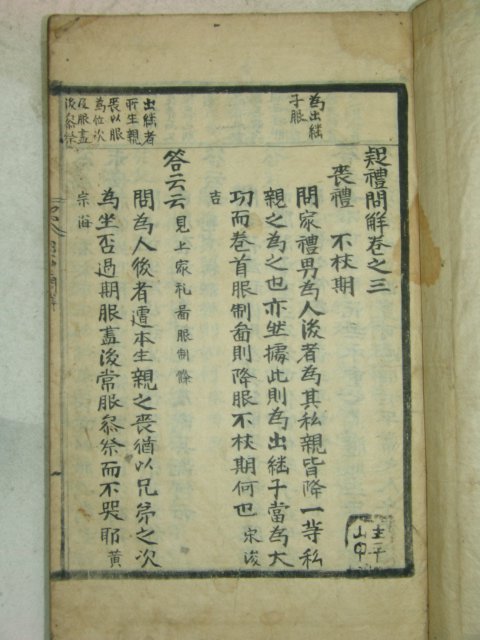 疑禮問解卷之三
喪禮 不杖期
為出繼
子服
問家禮男為人後者為其私親皆降一等私
親之為之也亦然據此則為出継子當為大
功而卷首服制啚則降服不杖期何也 宋浚
吉
答云云 見上家礼啚服制條
出継者
所生親
喪以服
為位次
及服盡
後叅祭
問為人後者遭本生親之喪猶以兄弟之次
為坐否過期服盡後常服叅祭而不哭耶 黃
宗海